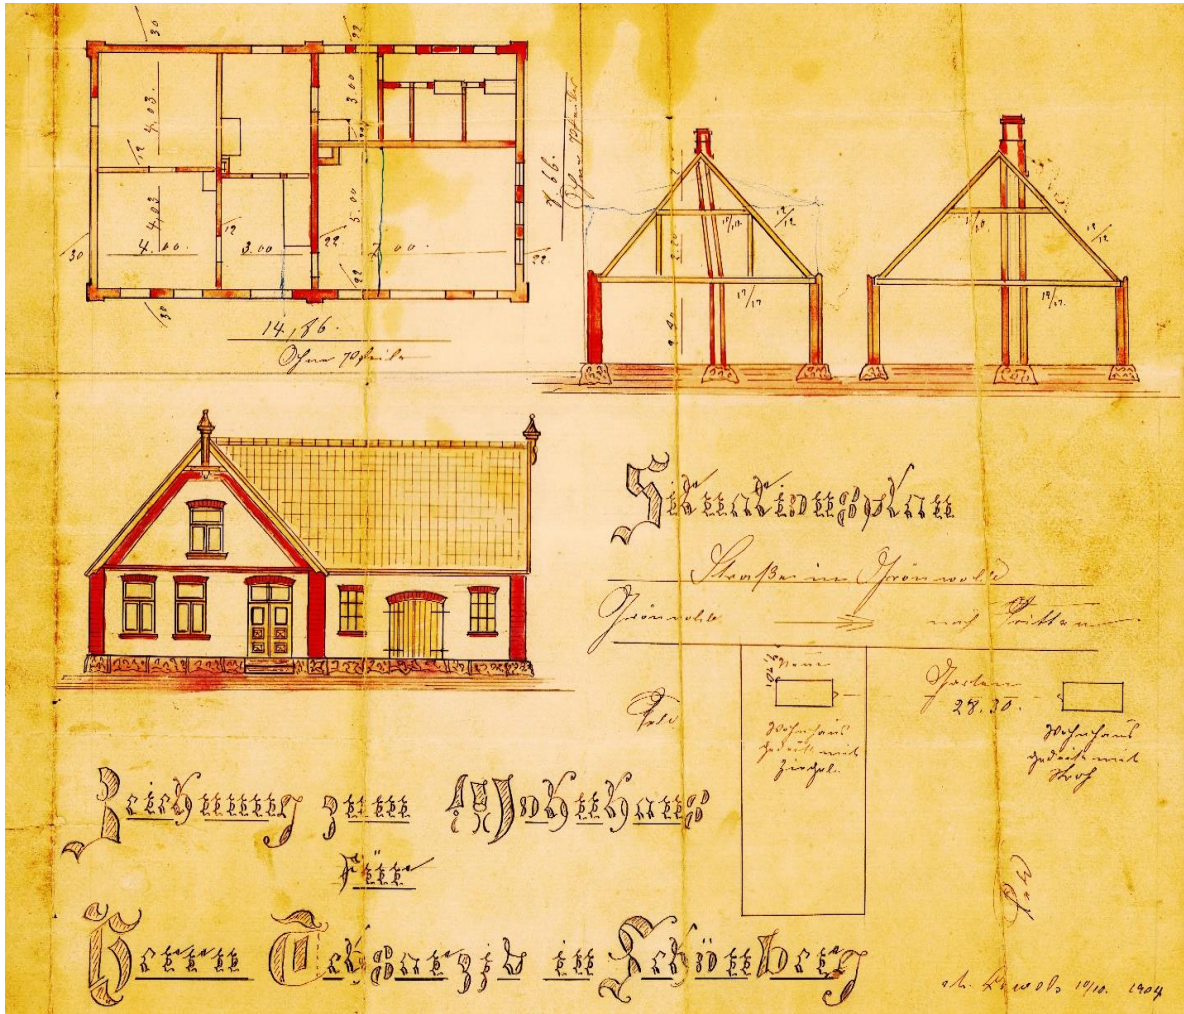 30
22
4.03.
3.00
12
4.03
5.00
4.00.
3.00
22
7.00.
12
30
22
22
30
14,86.
Ohne Pfeiler
7.66.
Ohne Pfeiler
12/12
12/12
17/17
Situationsplan
Straße in Grönwold
Grönwold
nach Trittau
Feld
Neues
Wohnhaus
gedeckt mit
Ziegel.
Garten
28.30.
Wohnhaus
gedeckt mit
Stroh
Zeichnung zum Wohnhaus
Für
Herrn in Schönberg
10/10. 1904